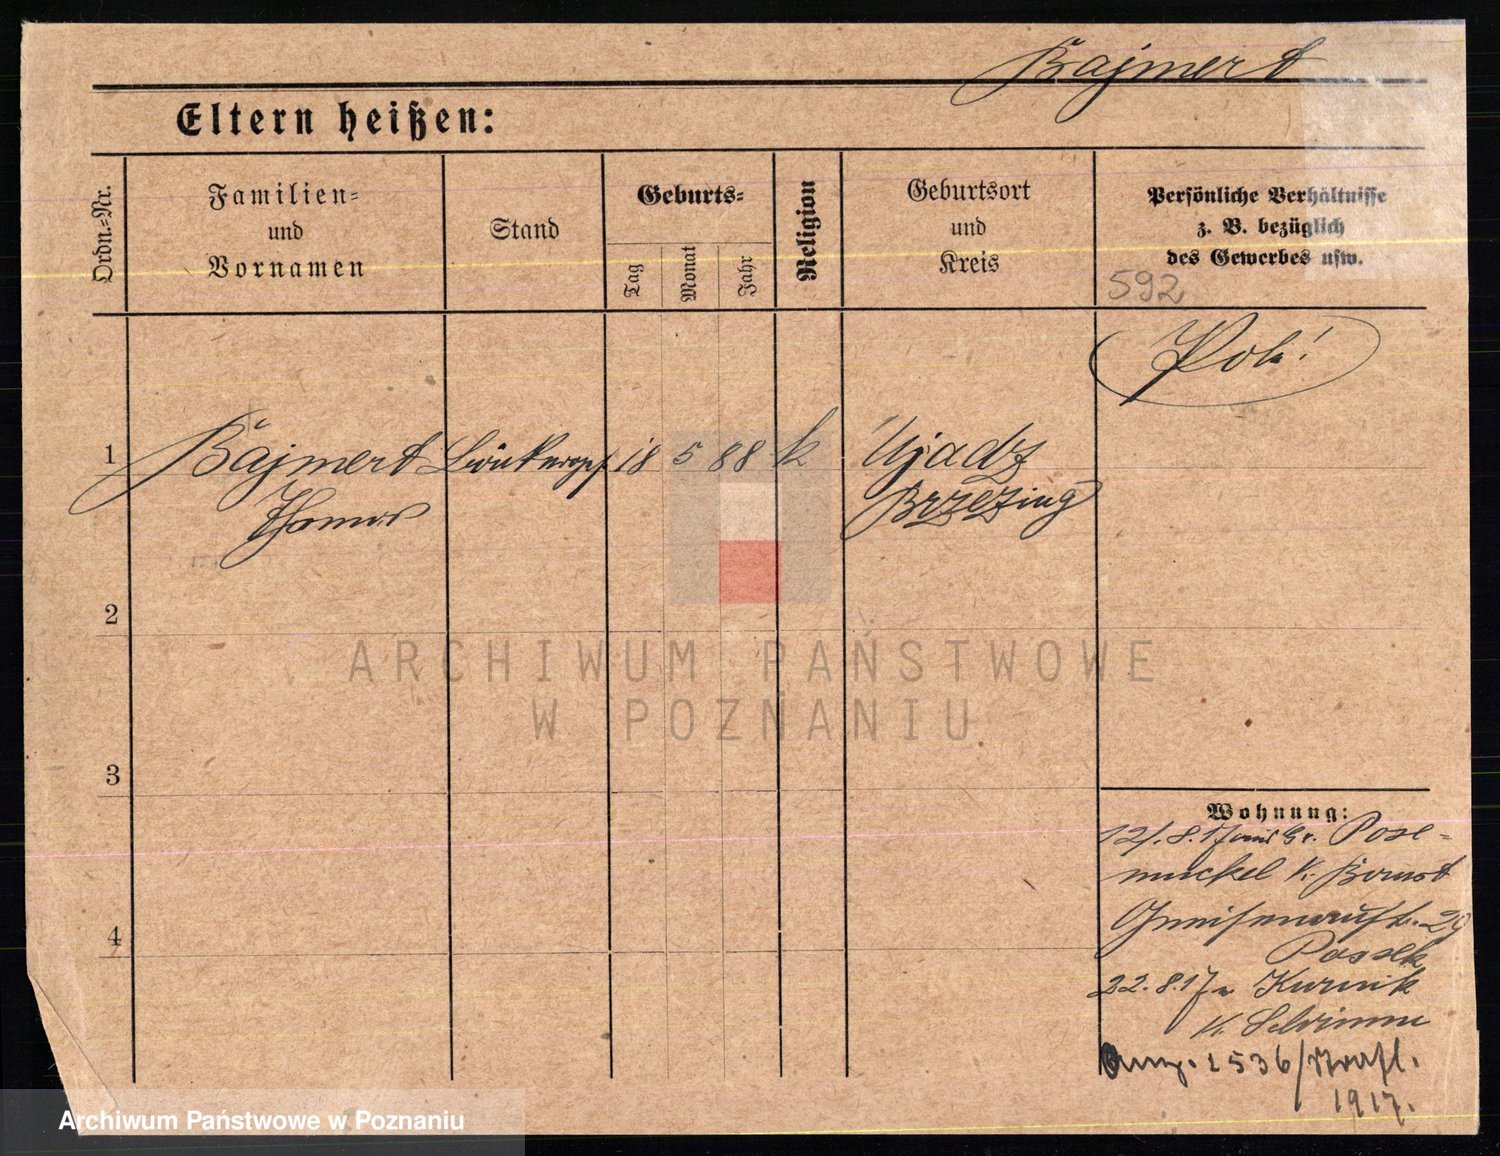 Bajmert
Eltern heißen:
Ordn.-Nr.
Familien-
und
Vornamen
Stand
Geburts-
Tag
Monat
Jahr
Religion
Geburtsort
und
Kreis
Persönliche Verhältnisse
z. B. bezüglich
des Gewerbes usw.
592
Pole!
1 Bajmert 18 5 88 k Ujadz
Thomas Brzeziny
2
3
4
Wohnung:
12/.8.17 aus Gr. Pose-
muckel K. Bomst
Gneisenaustr. 29
22.8.17 n. Kurnik
K. Schrimm
1536/
1917.
ARCHIWUM PAŃSTWOWE
W POZNANIU
Archiwum Państwowe w Poznaniu